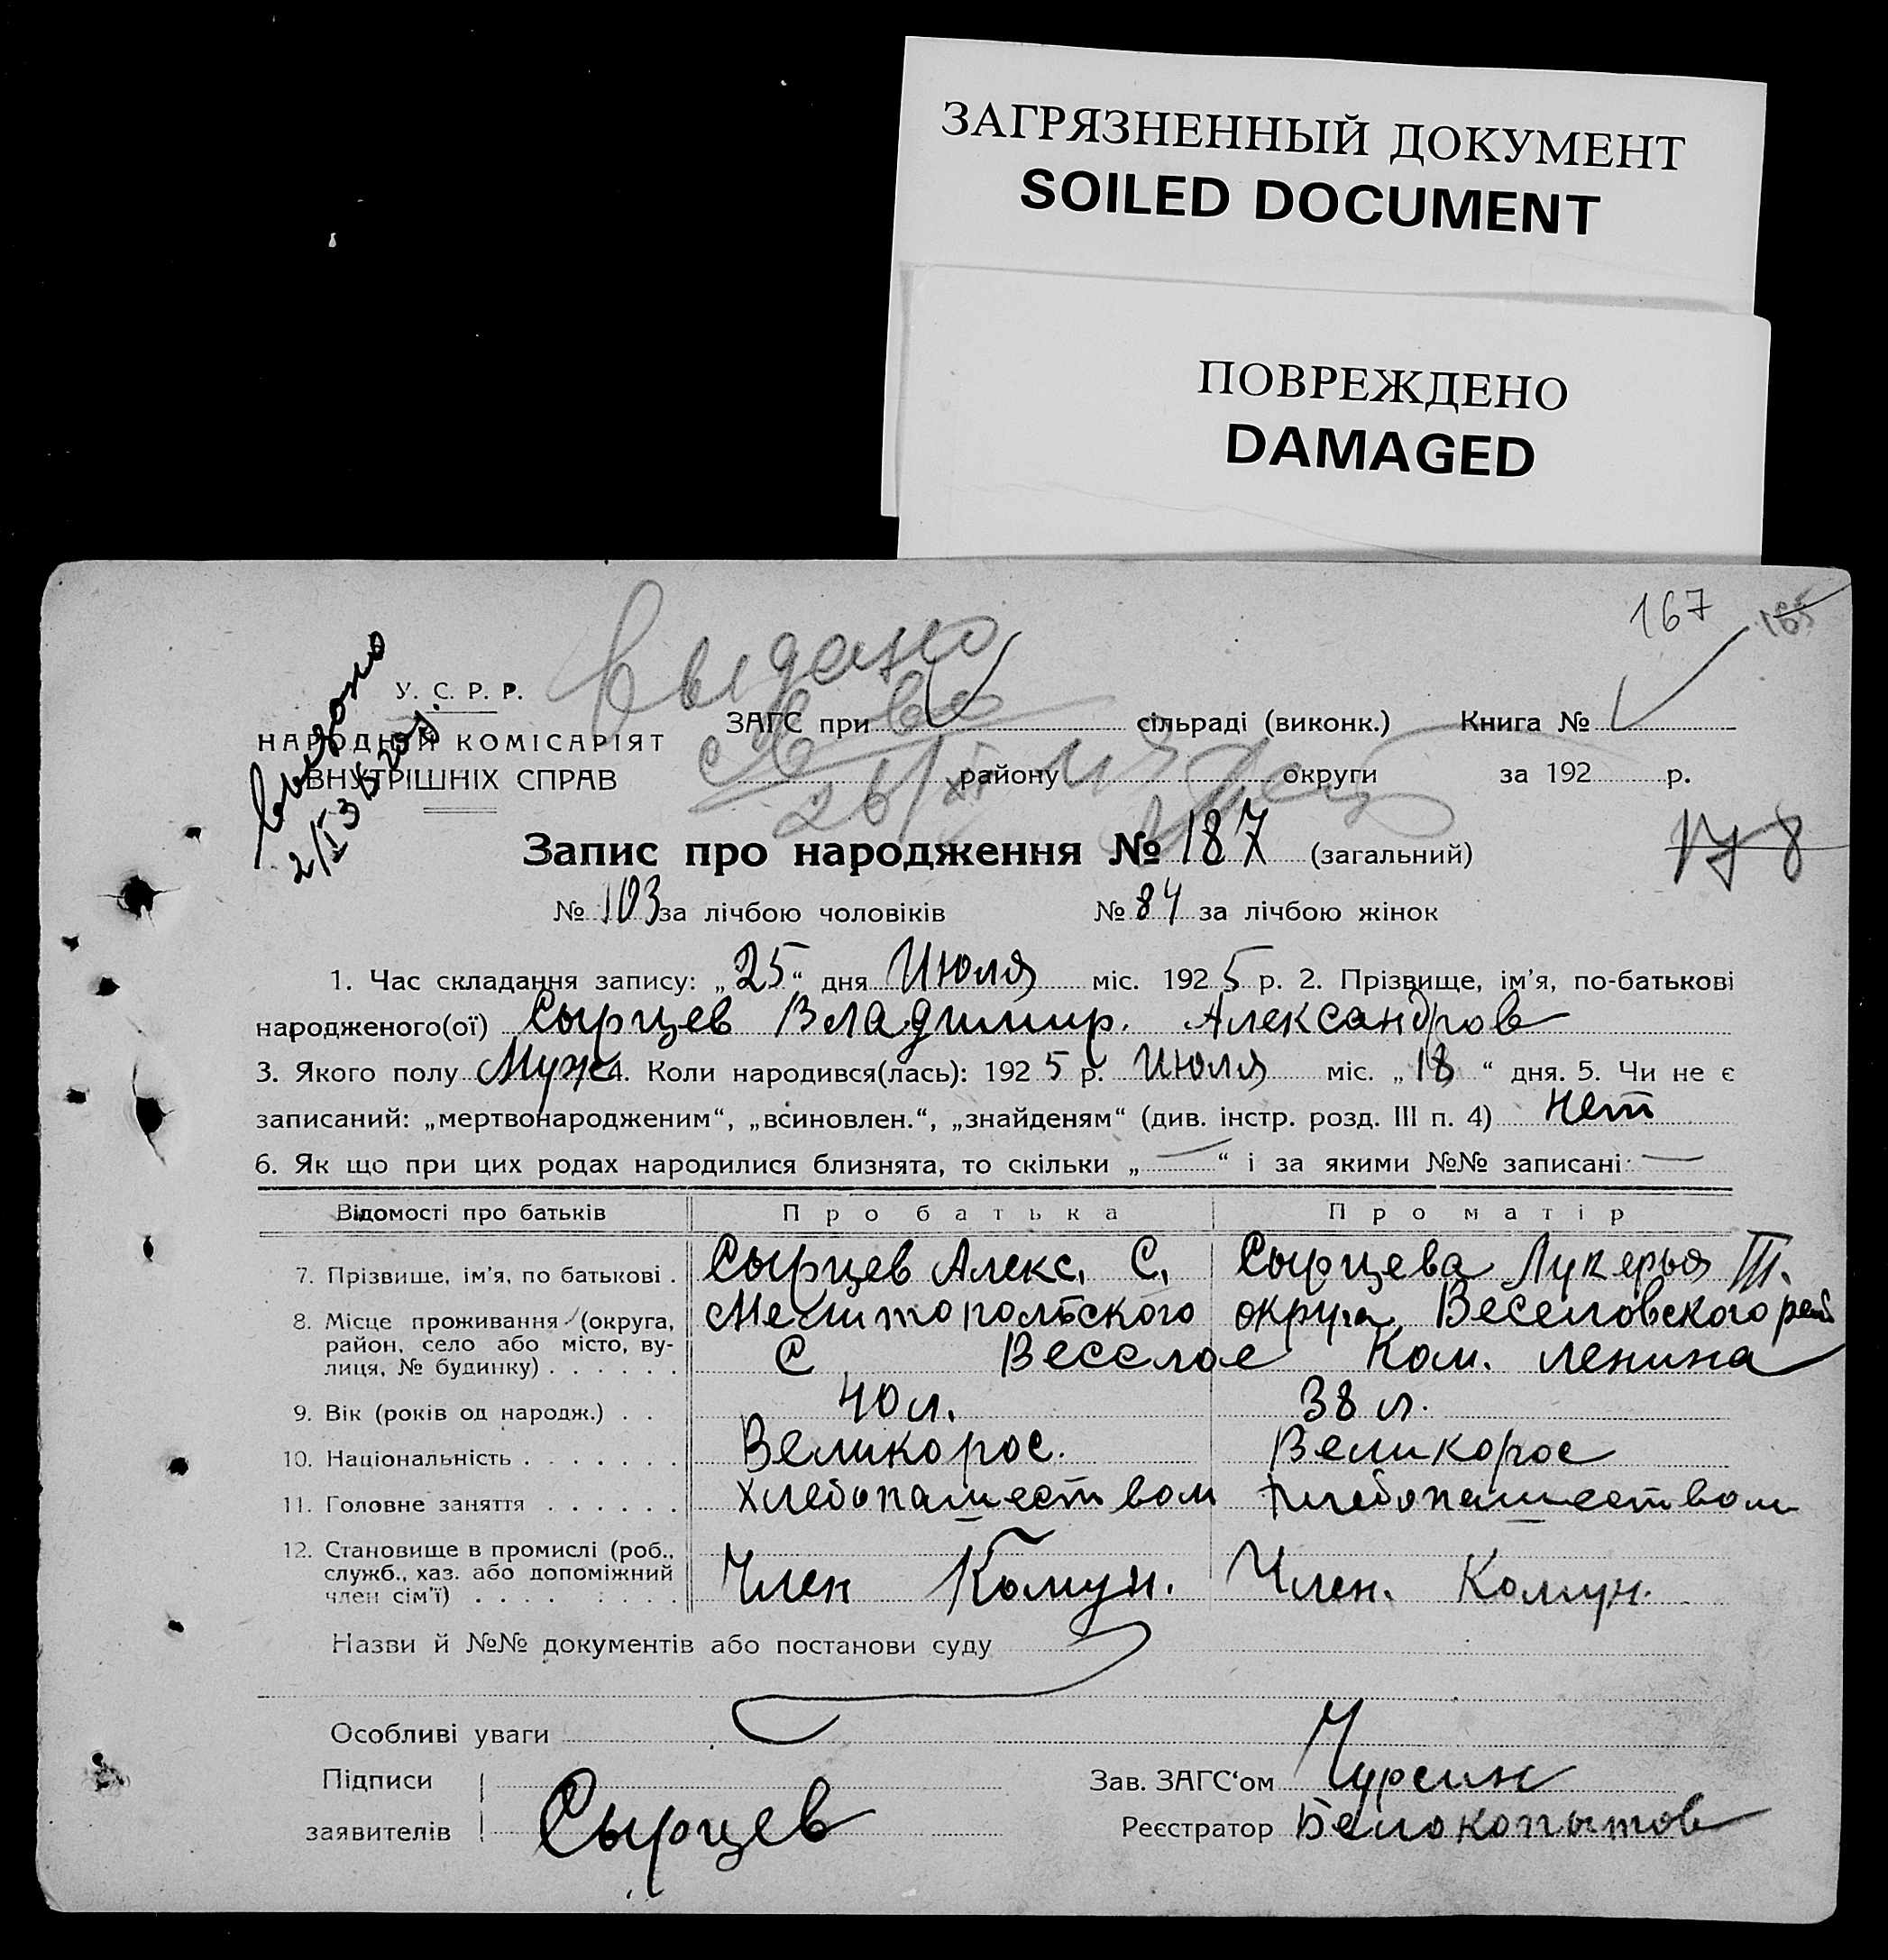 ЗАГРЯЗНЕННЫЙ ДОКУМЕНТ
SOILED DOCUMENT
ПОВРЕЖДЕНО
DAMAGED
167 165
выдано
У. С. Р. Р.
НАРОДНИЙ КОМІСАРІЯТ
ВНУТРІШНІХ СПРАВ
ЗАГС при сільраді (виконк.) Книга №
району округи за 192 р.
Запис про народження № 187 (загальний)
178
№ 103 за лічбою чоловіків № 84 за лічбою жінок
1. Час складання запису: „25“ дня Июля міс. 1925 р. 2. Прізвище, ім'я, по-батькові
народженого(ої) Сырцев Владимир. Александров
3. Якого полу Муж 4. Коли народився(лась): 1925 р. Июля міс. „18“ дня. 5. Чи не є
записаний: „мертвонародженим“, „всиновлен.“, „знайденям“ (див. інстр. розд. III п. 4) Нет
6. Як що при цих родах народилися близнята, то скільки „—“ і за якими №№ записані —
Відомості про батьків Про батька Про матір
7. Прізвище, ім'я, по батькові . Сырцев Алекс. С. Сырцева Лукерья Т.
8. Місце проживання (округа, Мелитопольского округа, Веселовского рай
район, село або місто, ву-
лиця, № будинку) . . . . . . С Веселое Ком. Ленина
9. Вік (років од народж.) . . 40 л. 38 л.
10. Національність . . . . . . . Великорос. Великорос
11. Головне заняття . . . . . . Хлебопашеством Хлебопашеством
12. Становище в промислі (роб.,
служб., хаз. або допоміжний Член Комун. Член. Комун.
член сім'ї) . . . . . . . .
Назви й №№ документів або постанови суду
Особливі уваги
Підписи
заявителів Сырцев
Зав. ЗАГС'ом Чурсин
Реєстратор Белокопытов